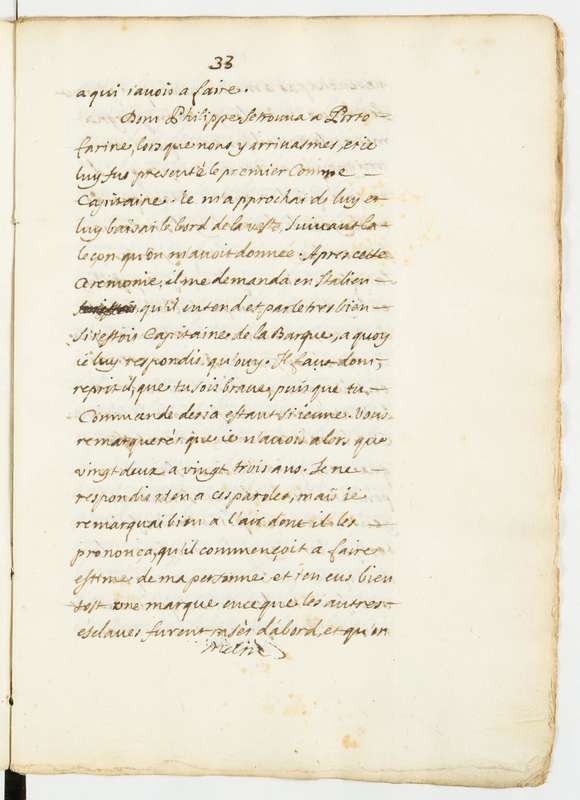 33
a qui iavois a faire.
Dom Philippe se trouva a Porto
farine, lors que nous y arrivasmes, et ie
luy fus presenté le premier Comme
Capitaine. Ie m'approchai de luy et
luy baisai le bord de la veste, suivant la
leçon qu'on m'avoit donnee. Apres cette
Ceremonie, il me demanda en Italien
qu'il entend et parle tres bien
si i'estois Capitaine de la Barque, a quoy
ie luy respondis qu'ouy. Il faut donc,
reprit il, que tu sois brave, puis que tu
Commande desia estant si ieune. Vous
remarquerés que ie n'avois alors que
vingt deux a vingt trois ans. Ie ne
respondis rien a ces paroles, mais ie
remarquai bien a l'air dont il les
prononça, qu'il commençoit a faire
estime de ma personne, et i'en eus bien
tost une marque en ce que les autres
esclaves furent rasés d'abord, et qu'on